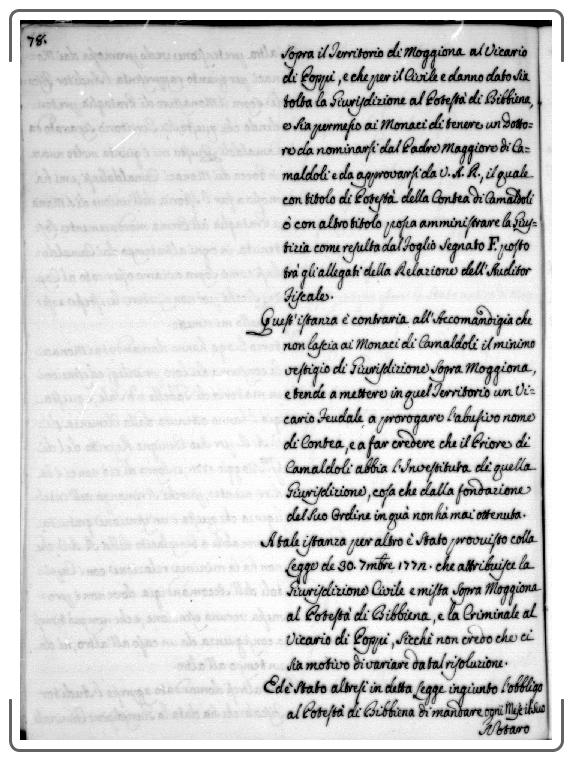 78.
Sopra il Territorio di Moggiona al Vicario
di Poppi, e che per il Civile e danno dato sia
tolta la Giurisdizione al Potestà di Bibbiena,
e sia permesso ai Monaci di tenere un dotto-
re da nominarsi dal Padre Maggiore di Ca-
maldoli e da approvarsi da V. A. R., il quale
con titolo di Potestà della Contea di Camaldoli
ò con altro titolo possa amministrare la Giu-
tizia come resulta dal Foglio Segnato F. posto
trà gli allegati della Relazione dell'Auditor
Fiscale.
Quest'istanza è contraria all'Accomandigia che
non lascia ai Monaci di Camaldoli il minimo
vestigio di Giurisdizione sopra Moggiona,
e tende a mettere in quel Territorio un Vi-
cario Feudale a prorogare l'abusivo nome
di Contea, e a far credere che il Priore di
Camaldoli abbia l'Investitura di quella
Giurisdizione, cosa che dalla fondazione
del Suo Ordine in quà non hà mai ottenuta.
A tale istanza per altro è stato provvisto colla
Legge de 30. 7mbre 1772. che attribuisce la
Giurisdizione Civile e mista Sopra Moggiona
al Potestà di Bibbiena, e la Criminale al
Vicario di Poppi, Sicchè non credo che ci
sia motivo di variare da tal risoluzione.
Ed è stato altresì in detta Legge ingiunto l'obbligo
al Potestà di Bibbiena di mandare ogni Mese il Suo
Notaro